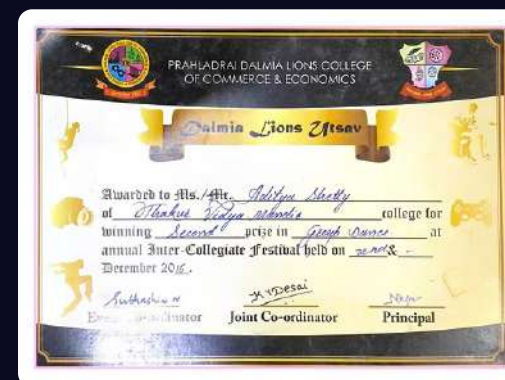 PRAHLADRAI DALMIA LIONS COLLEGE
OF COMMERCE & ECONOMICS
Dalmia Lions Utsav
Awarded to Ms./Mr. Aditya Shetty
of Thakur Vidya Mandir college for
winning Second prize in Group Dance at
annual Inter-Collegiate Festival held on 22nd & -
December 2015.
Joint Co-ordinator Principal